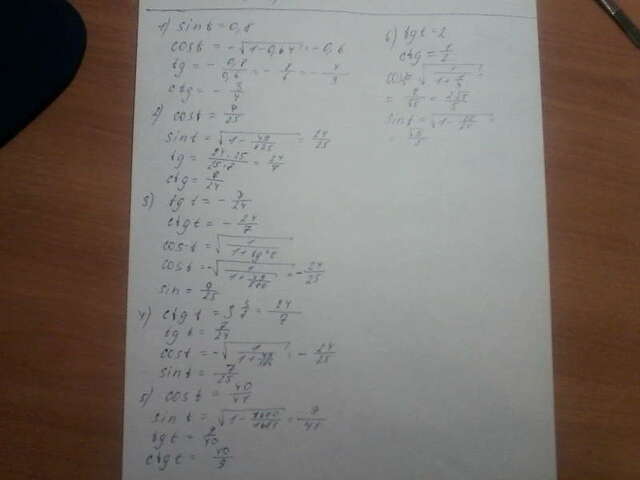 1) sin t = 0,8
cos t = -√(1-0,64) = -0,6
tg = - 0,8/0,6 = - 8/6 = - 4/3
ctg = - 3/4
2) cos t = 7/25
sin t = √(1 - 49/625) = 24/25
tg = 24·25/25·7 = 24/7
ctg = 7/24
3) tg t = - 7/24
ctg t = - 24/7
cos t = √(1/(1+tg²t))
cos t = -√(1/(1+49/576)) = - 24/25
sin = 7/25
4) ctg t = 3 3/7 = 24/7
tg t = 7/24
cos t = -√(1/(1+49/576)) = - 24/25
sin t = 7/25
5) cos t = 40/41
sin t = √(1 - 1600/1681) = 9/41
tg t = 9/40
ctg t = 40/9
6) tg t = 2
ctg = 1/2